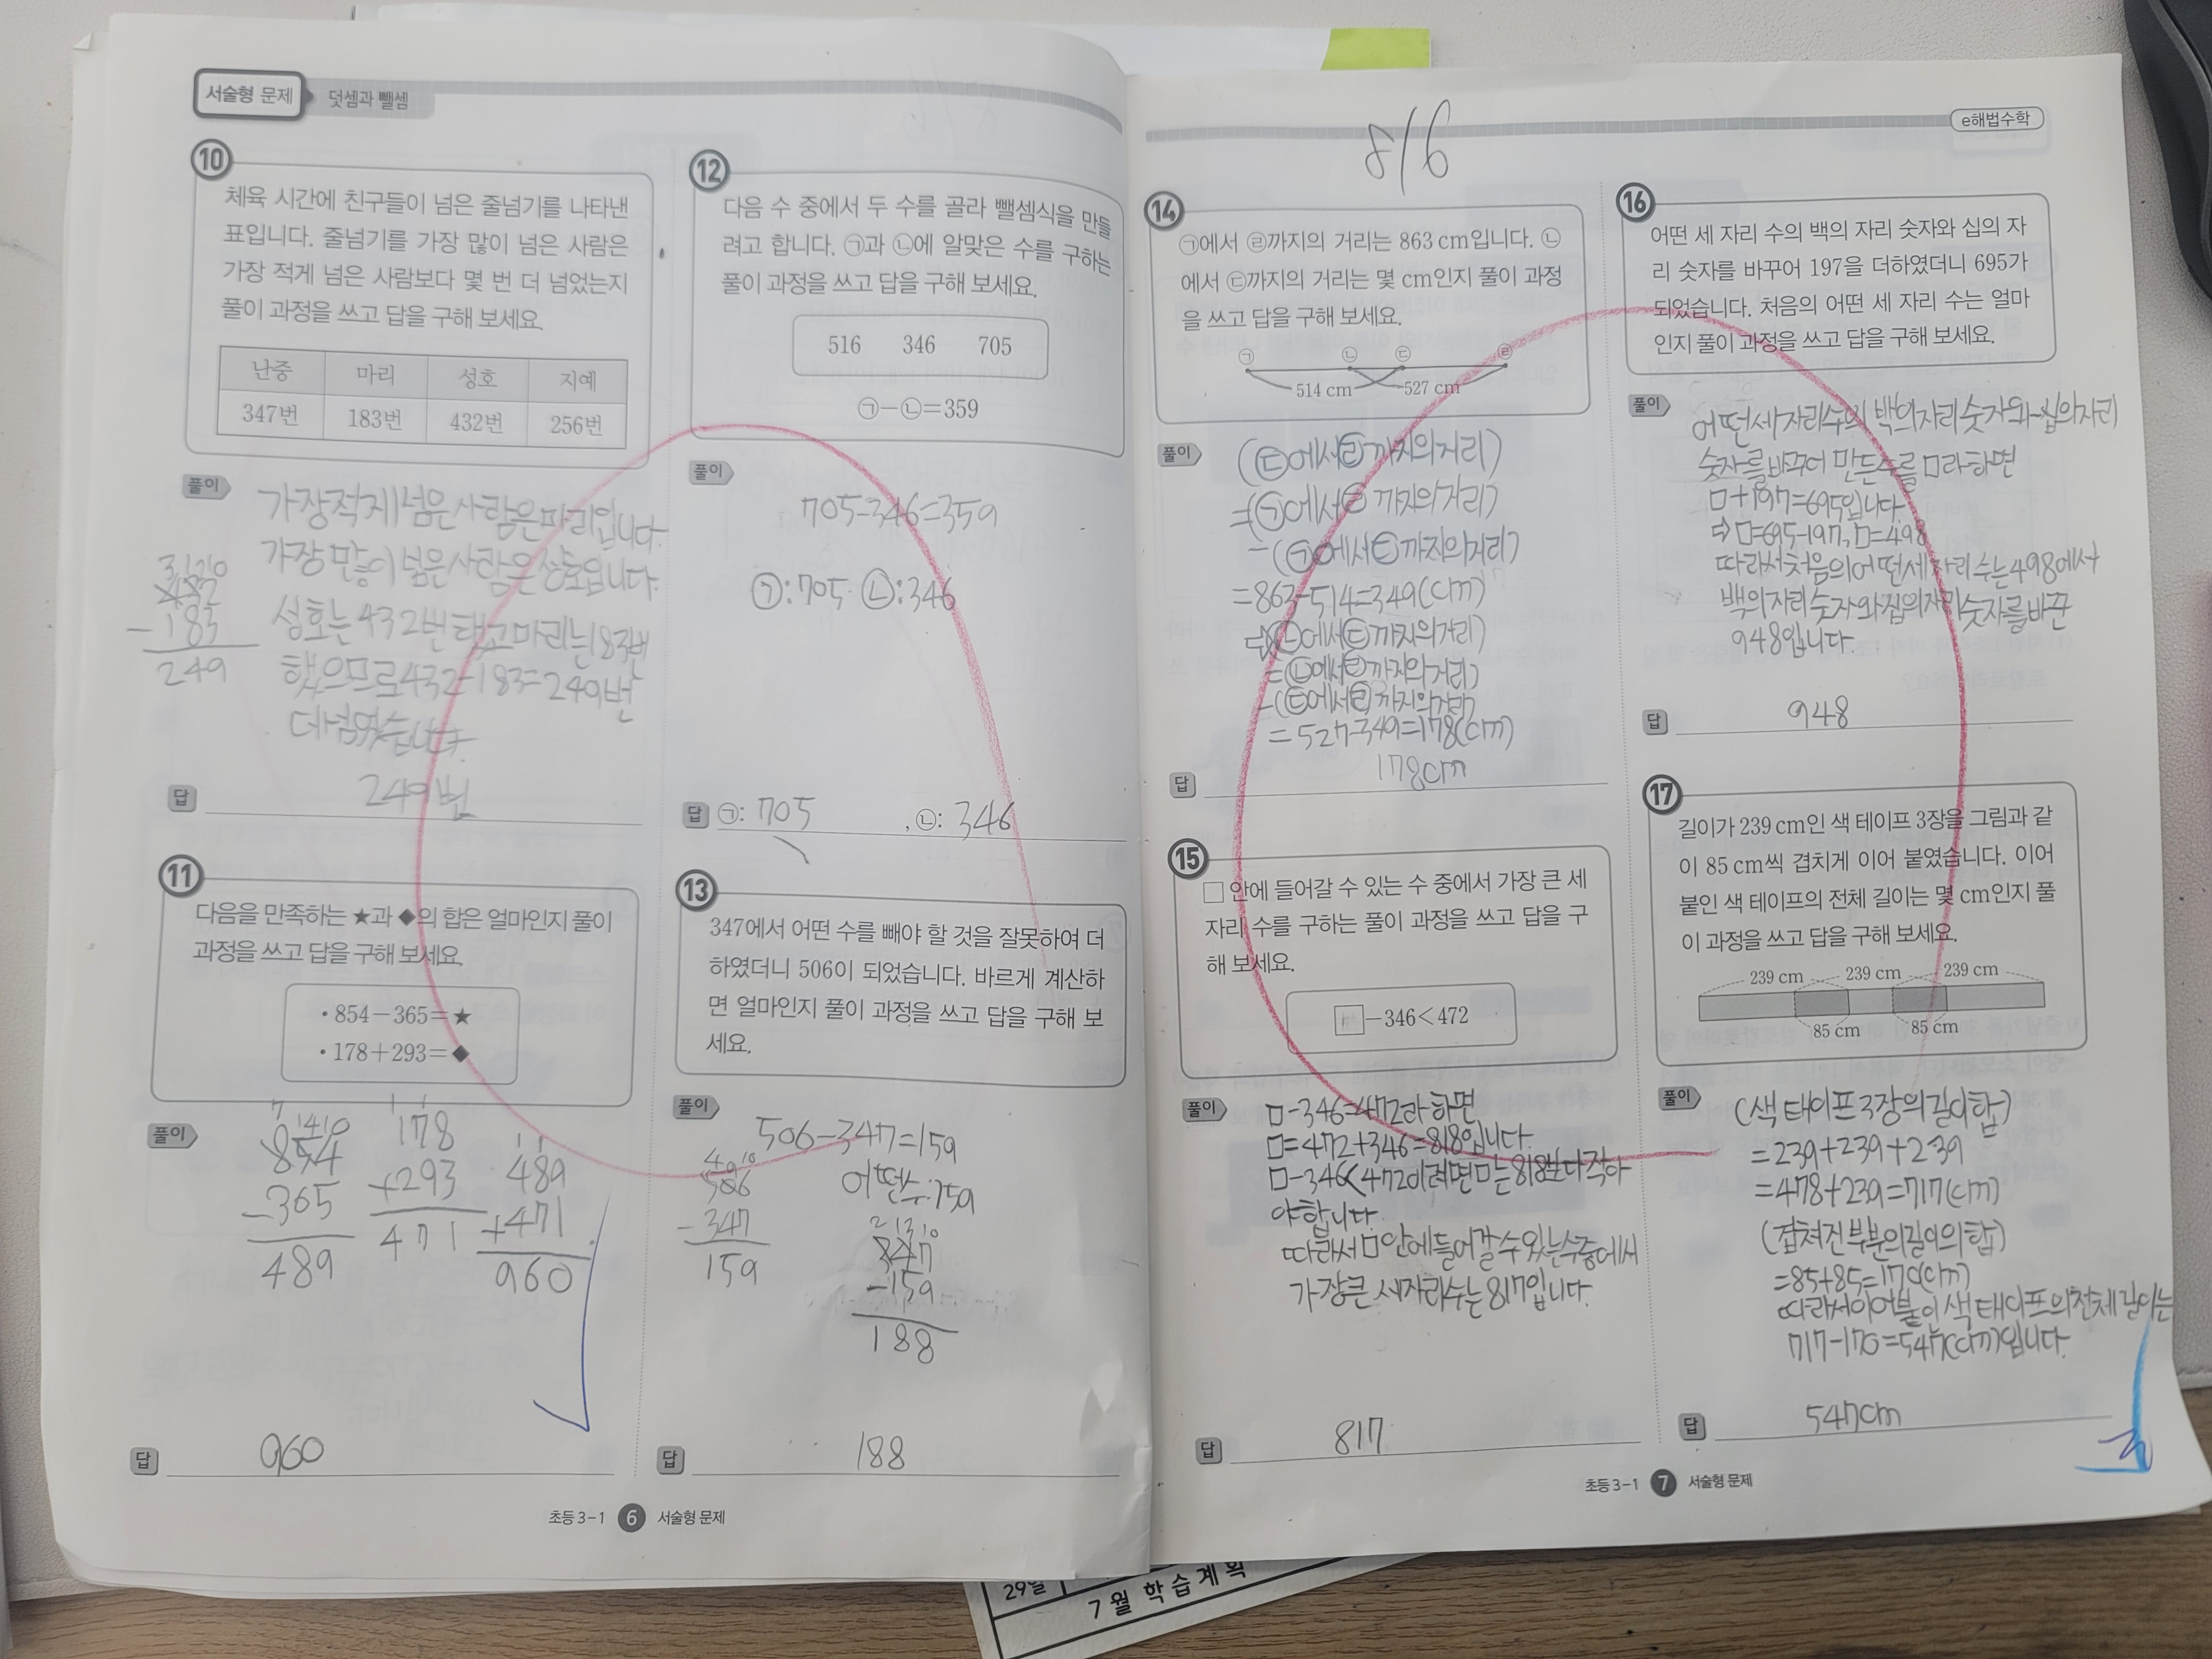 서술형 문제 덧셈과 뺄셈
10
체육 시간에 친구들이 넘은 줄넘기를 나타낸
표입니다. 줄넘기를 가장 많이 넘은 사람은
가장 적게 넘은 사람보다 몇 번 더 넘었는지
풀이 과정을 쓰고 답을 구해 보세요.
난중 마리 성호 지예
347번 183번 432번 256번
풀이
가장적게넘은사람은마리입니다.
가장많이넘은사람은성호입니다.
성호는432번했고마리는183번
했으므로432-183=249번
더넘었습니다.
31210
432
-183
249
답 249번
11
다음을 만족하는 ★과 ◆의 합은 얼마인지 풀이
과정을 쓰고 답을 구해 보세요.
• 854-365=★
• 178+293=◆
풀이
7 14 10
854
-365
489
1 1
178
+293
471
1 1
489
+471
960
답 960
12
다음 수 중에서 두 수를 골라 뺄셈식을 만들
려고 합니다. ㉠과 ㉡에 알맞은 수를 구하는
풀이 과정을 쓰고 답을 구해 보세요.
516 346 705
㉠-㉡=359
풀이
705-346=359
㉠:705 ㉡:346
답 ㉠: 705 , ㉡: 346
13
347에서 어떤 수를 빼야 할 것을 잘못하여 더
하였더니 506이 되었습니다. 바르게 계산하
면 얼마인지 풀이 과정을 쓰고 답을 구해 보
세요.
풀이
506-347=159
어떤수:159
4 9 10
506
-347
159
2 13 10
347
-159
188
답 188
초등 3-1 6 서술형 문제
e해법수학
8/6
14
㉠에서 ㉣까지의 거리는 863 cm입니다. ㉡
에서 ㉢까지의 거리는 몇 cm인지 풀이 과정
을 쓰고 답을 구해 보세요.
㉠ ㉡ ㉢ ㉣
514 cm 527 cm
풀이
(㉢에서㉣까지의거리)
=(㉠에서㉣까지의거리)
-(㉠에서㉢까지의거리)
=863-514=349(cm)
⇨(㉡에서㉢까지의거리)
=(㉡에서㉣까지의거리)
-(㉢에서㉣까지의거리)
=527-349=178(cm)
답 178cm
15
□ 안에 들어갈 수 있는 수 중에서 가장 큰 세
자리 수를 구하는 풀이 과정을 쓰고 답을 구
해 보세요.
□-346<472
풀이
□-346=472라하면
□=472+346=818입니다.
□-346<472이려면□는818보다작아
야합니다.
따라서□안에들어갈수있는수중에서
가장큰세자리수는817입니다.
답 817
16
어떤 세 자리 수의 백의 자리 숫자와 십의 자
리 숫자를 바꾸어 197을 더하였더니 695가
되었습니다. 처음의 어떤 세 자리 수는 얼마
인지 풀이 과정을 쓰고 답을 구해 보세요.
풀이
어떤세자리수의 백의자리숫자와십의자리
숫자를바꾸어 만든수를□라하면
□+197=695입니다.
⇨□=695-197,□=498
따라서처음의어떤세자리수는498에서
백의자리숫자와십의자리숫자를바꾼
948입니다.
답 948
17
길이가 239 cm인 색 테이프 3장을 그림과 같
이 85 cm씩 겹치게 이어 붙였습니다. 이어
붙인 색 테이프의 전체 길이는 몇 cm인지 풀
이 과정을 쓰고 답을 구해 보세요.
239 cm 239 cm 239 cm
85 cm 85 cm
풀이
(색테이프3장의길이합)
=239+239+239
=478+239=717(cm)
(겹쳐진부분의길이의합)
=85+85=170(cm)
따라서이어붙인색테이프의전체길이는
717-170=547(cm)입니다.
답 547cm
초등 3-1 7 서술형 문제
29일
7월 학습계획